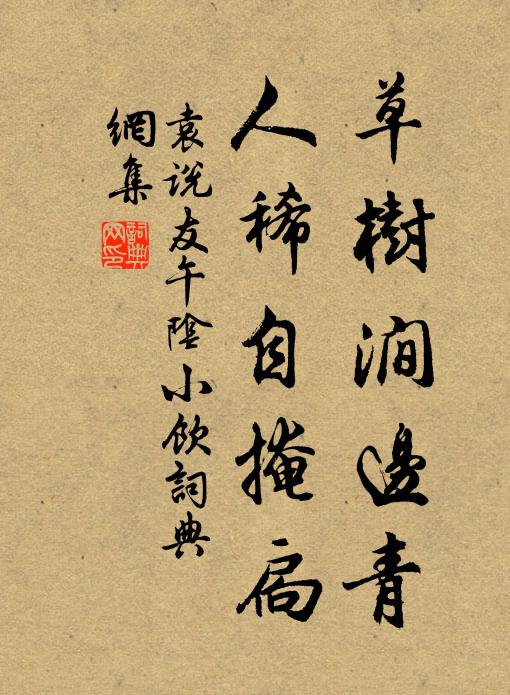 草樹澗邊青
人稀自掩扃
袁說友午陰小飲詞典
網集
詞典
网印